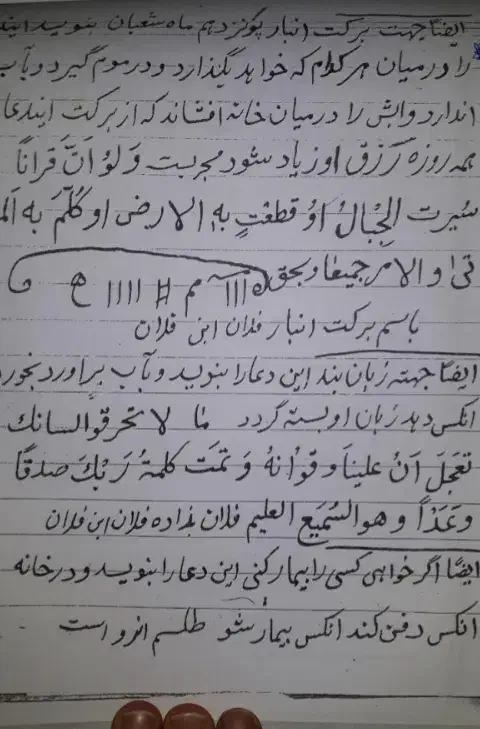 ایضا جهت برکت انبار پونزدهم ماه شعبان بنویسد
را در میان هر کدام که خواهد بگذارد و در موم گیرد و بآب
اندازد و ابش را در میان خانه افشاند که از برکت این دعا
همه روزه رزق او زیاد شود مجربست وَلَوُ اَنَّ قراناً
سُیرت الجِبالُ اوُ قطعت بِهِ الارض او کُلِّمَ به الم
تیٰ و الامر جمیعا و بحق ااا م # اااا ح و
باسم برکت انبار فلان ابن فلان
ایضاً جهته زبان بند این دعا را بنویسد و بآب براورد بخورد
انکس دهد زبان او بسته گردد ما لا تحرقوالسانك
تعجَلَ اَنُ علینا و قرانهُ وَ تمَت کلمةُ رَبُكَ صدقاً
وَ عَدَذاً و هو السَّمَیع العلیم فلان بداده فلان ابن فلان
ایضاً اگر خواهی کسی را بیمار کنی این دعا را بنویسد و در خانه
انکس دفن کند انکس بیمار شو طلسم انرو است